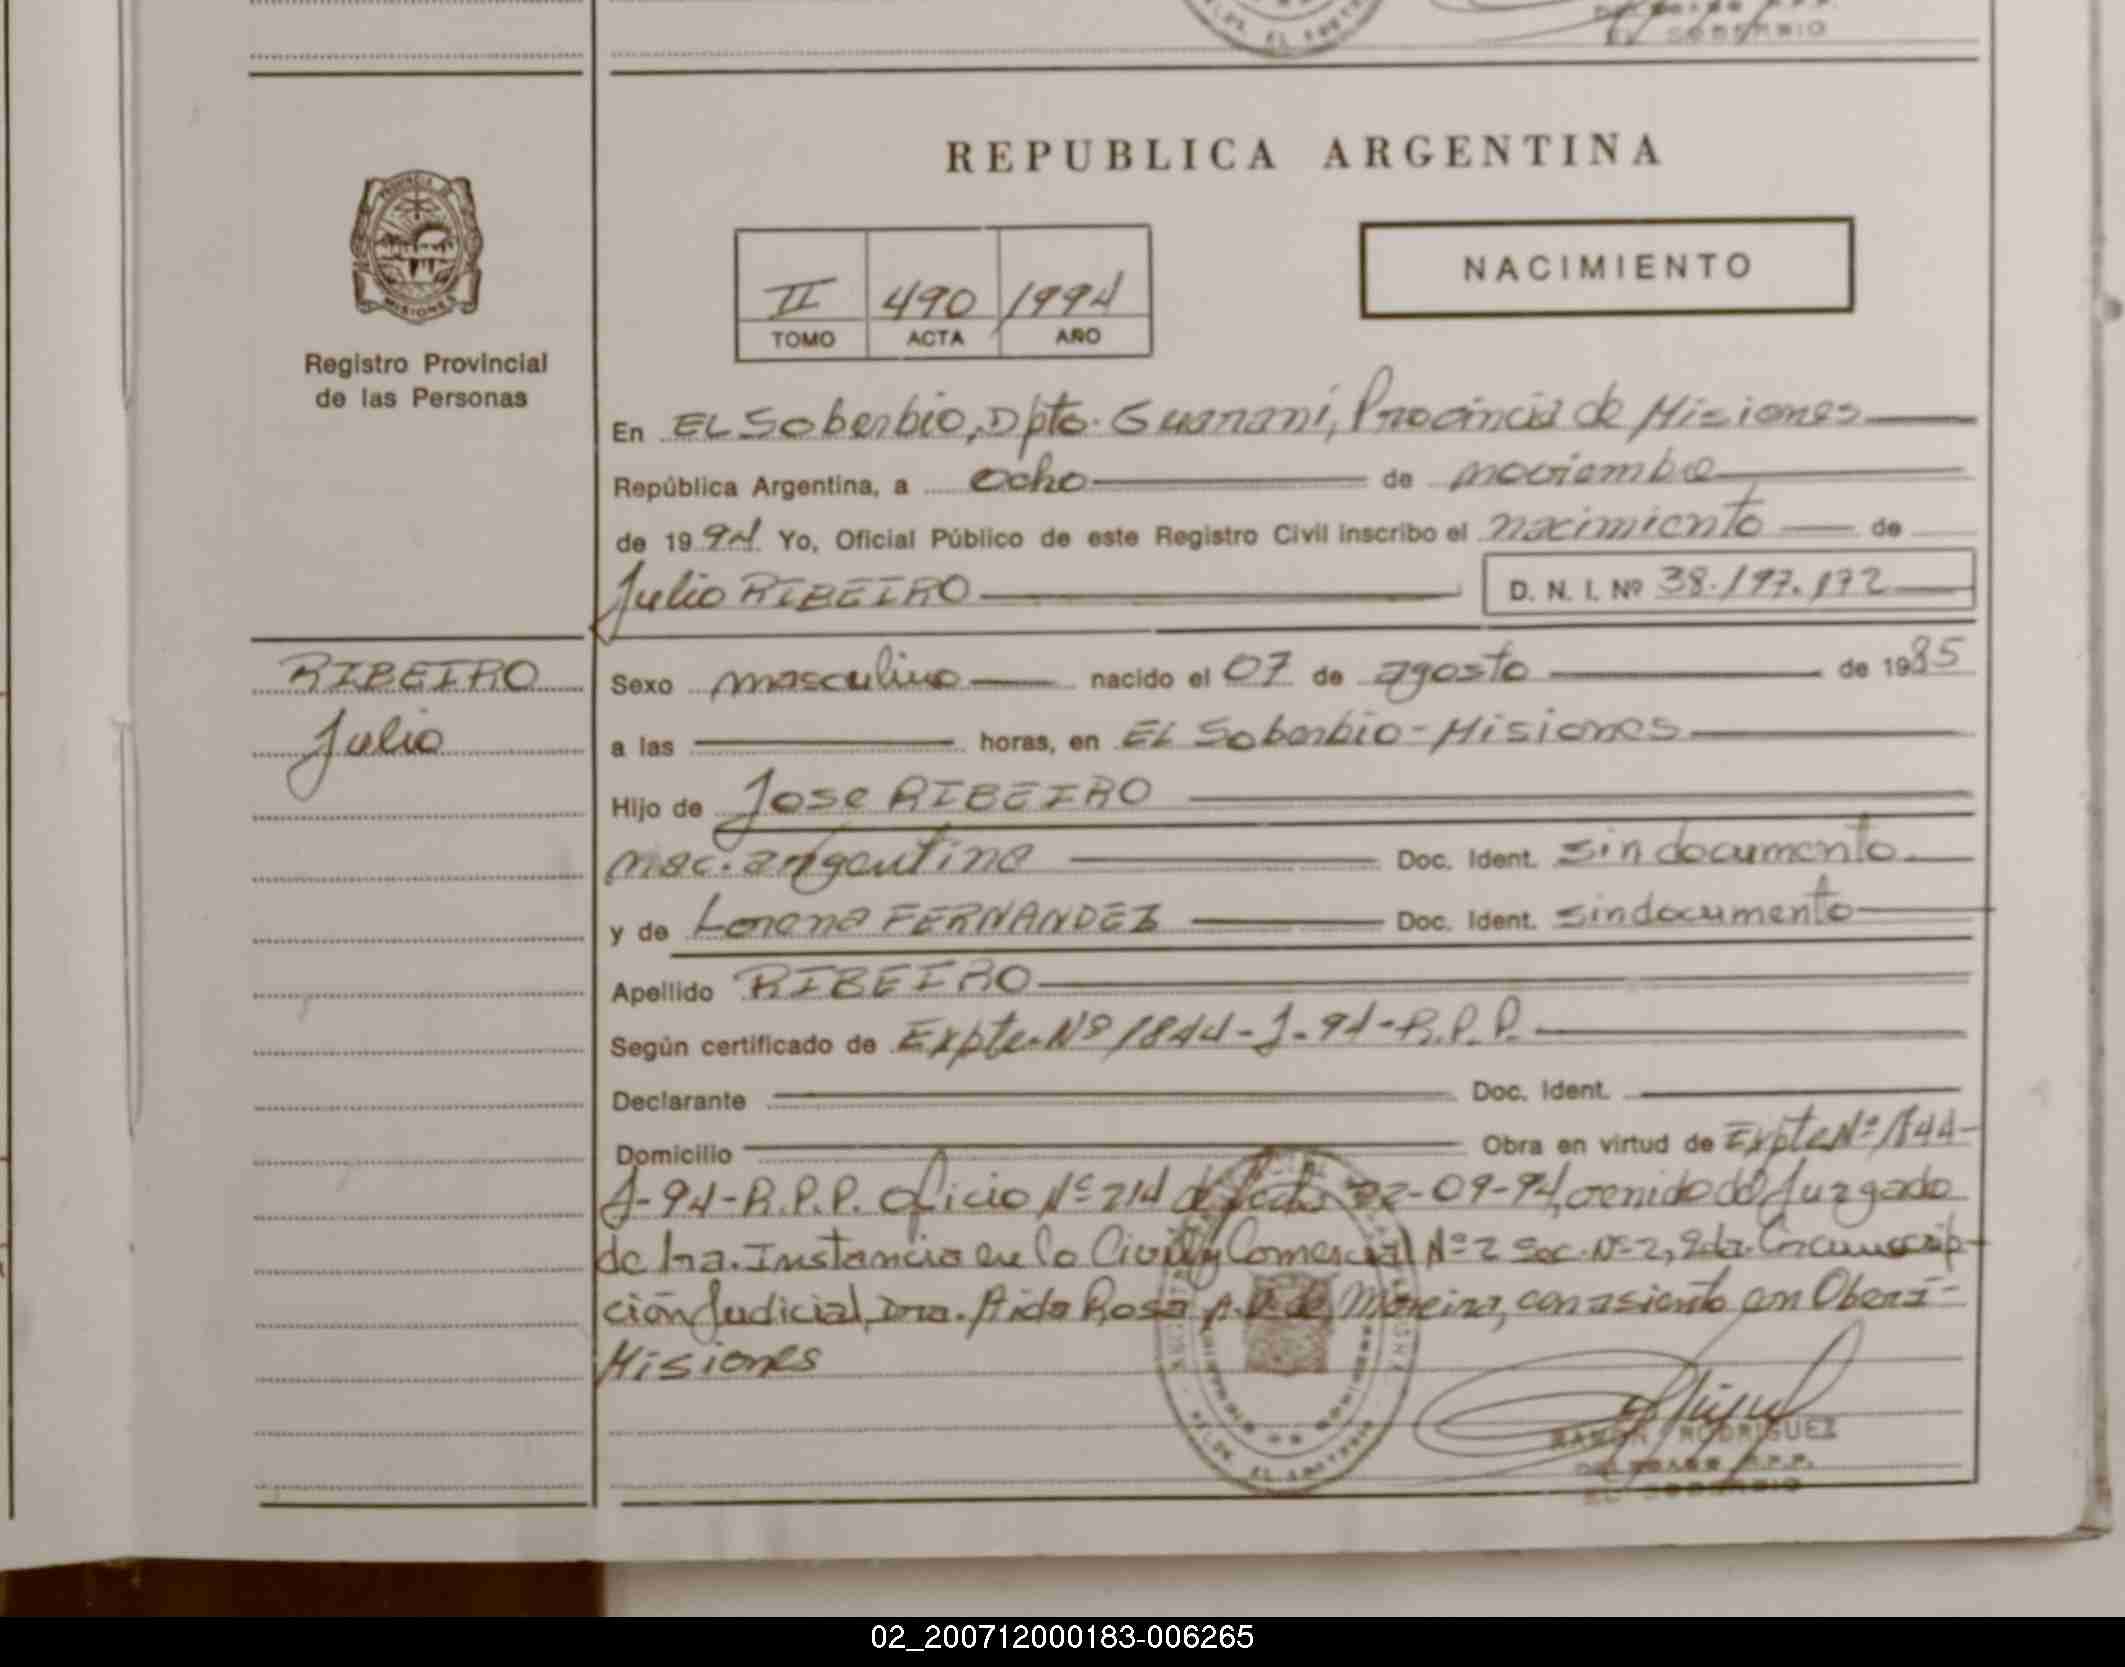 REPUBLICA ARGENTINA
PROVINCIA DE
MISIONES
Registro Provincial
de las Personas
II 490 1994
TOMO ACTA AÑO
NACIMIENTO
En EL Soberbio, Dpto. Guarani, Provincia de Misiones
República Argentina, a ocho de noviembre
de 1994 Yo, Oficial Público de este Registro Civil inscribo el nacimiento de
Julio RIBEIRO D. N. I. Nº 38.197.172
RIBEIRO
Julio
Sexo masculino nacido el 07 de agosto de 1985
a las horas, en EL Soberbio - Misiones
Hijo de Jose RIBEIRO
nac. argentina Doc. Ident. sin documento
y de Lorena FERNANDEZ Doc. Ident. sin documento
Apellido RIBEIRO
Según certificado de Expte. Nº 1844-J-94-R.P.P.
Declarante Doc. Ident.
Domicilio Obra en virtud de Expte Nº 1844-
J-94-R.P.P. Oficio Nº 214 de fecha 22-09-94, venido del Juzgado
de 1ra. Instancia en lo Civil y Comercial Nº 2 Sec. Nº 2, 2da. Circunscrip-
ción Judicial, Dra. Aida Rosa de Moreira, con asiento en Oberá-
Misiones
RAMON RODRIGUEZ
DELEGADO R.P.P.
EL SOBERBIO
02_200712000183-006265